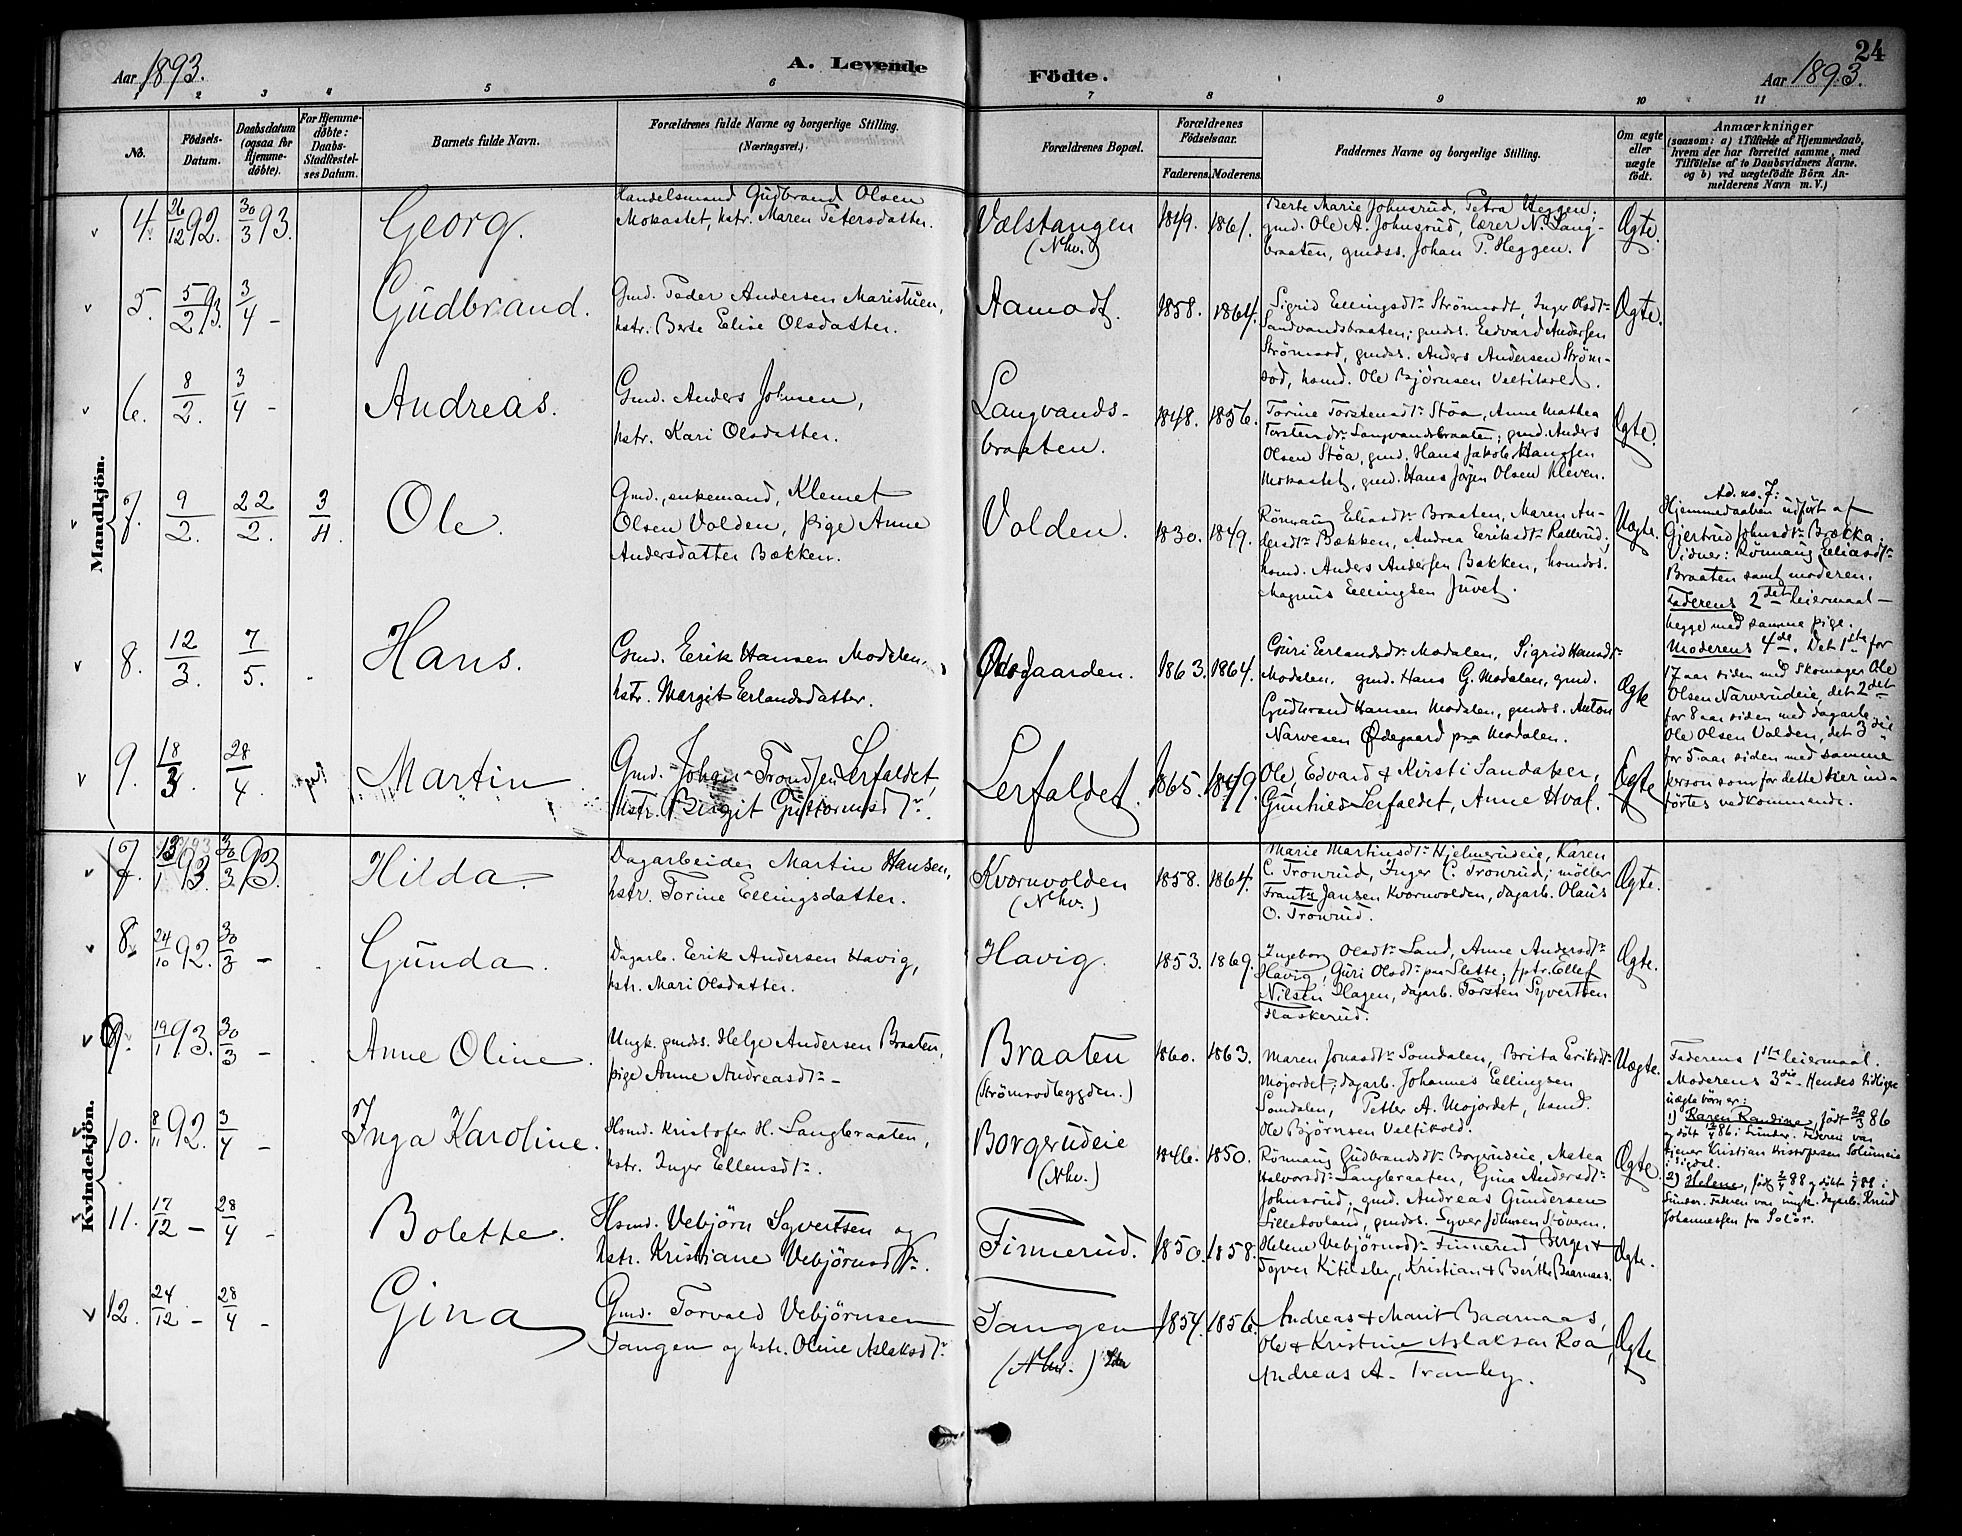 Aar 1893.
A. Levende
Födte.
24
Aar 1893.
1 2 3 4 5 6 7 8 9 10 11
No.
Födsels-
Datum.
Daabsdatum
(ogsaa for
Hjemme-
døbte).
For Hjemme-
døbte:
Daabs-
Stadfæstel-
ses Datum.
Barnets fulde Navn.
Forældrenes fulde Navne og borgerlige Stilling.
(Næringsvei.)
Forældrenes Bopæl.
Forældrenes
Födselsaar.
Faderens. Moderens.
Faddernes Navne og borgerlige Stilling.
Om ægte
eller
uægte
født.
Anmærkninger
(saasom: a) i Tilfælde af Hjemmedaab,
hvem der har forrettet samme, med
Tilföielse af to Daabsvidners Navne,
og b) ved uægtefödte Börn An-
melderens Navn m. V.)
Mandkjön.
4. 26/12 92. 30/3 93.
Georg.
Handelsmand Gudbrand Olsen
Mokastet, hstr. Maren Petersdatter.
Vælstangen
(Nhv.)
1849. 1861.
Berte Marie Johnsrud, Petra Heggen;
gmd. Ole A. Johnsrud, lærer N. Lang-
braaten, gmdss. Johan P. Heggen.
Ægte.
5. 5/2 93. 3/4 -
Gudbrand.
Gmd. Peder Andersen Maristuen,
hstr. Berte Elise Olsdatter.
Aamodt.
1858. 1864.
Sigrid Ellingsdt. Strömsodt, Inger Olsdt.
Sandvandsbraaten; gmds. Edvard Andersen
Strömsod, gmdss. Anders Andersen Ström-
sod, hsmd. Ole Björnsen Veltikold.
Ægte.
6. 8/2. 3/4 -
Andreas.
Gmd. Anders Johnsen,
hstr. Kari Olsdatter.
Langvands-
braaten.
1848. 1856.
Torine Torstensdt. Støa, Anne Mathea
Torstensdt. Langvandsbraaten; gmd. Anders
Olsen Støa, gmd. Hans Jakob Hansen
Mokastet, gmd. Hans Jørgen Olsen Kleven.
Ægte.
7. 9/2. 22/2. 3/4.
Ole.
Gmd., enkemand, Klemet
Olsen Volden, pige Anne
Andersdatter Bakken.
Volden.
1830. 1849.
Rönnaug Eliasdt. Braaten, Maren An-
dersdt. Bækken, Andrea Eriksdt. Rallerud;
hsmd. Anders Andersen Bakken, hsmdss.
Magnus Ellingsen Juvet.
Uægte.
Ad. no. 7:
Hjemmedaaben udført af
Gjertrud Johnsdt. Brækka;
Vidner: Rönnaug Eliasdt.
Braaten samt moderen.
Faderens 2det leiermaal -
begge med samme pige.
Moderens 4de. Det 1ste for
17 aar siden med Skomager Ole
Olsen Narverudeie, det 2det
for 8 aar siden med dagarb.
Ole Olsen Volden, det 3die
for 5 aar siden med samme
person som for dette her ind-
førtes vedkommende.
8. 12/3. 7/5.
Hans.
Gmd. Erik Hansen Modalen,
hstr. Margit Erlandsdatter.
Ødegaarden.
1863. 1864.
Guri Erlandsdt. Modalen, Sigrid Hansdt.
Modalen, gmd. Hans G. Modalen, gmd.
Gudbrand Hansen Modalen, gmdss. Anton
Narvesen Ødegaard paa Modalen.
Ægte
9. 18/3. 28/4.
Martin
Gmd. Johan Trondsen Lerfaldet,
hstr. Birgit Guttormsdt.
Lerfaldet.
1865. 1849.
Ole, Edvard & Kirsti Sandaker,
Gunhild Lerfaldet, Anne Hval.
Ægte
Kvindekjön.
7. 13/1 93. 30/3 93.
Hilda.
Dagarbeider Martin Hansen,
hstr. Torine Ellingsdatter.
Kvernvolden
(Nhv.)
1858. 1864.
Marie Martinsdt. Hjelmerudeie, Karen
C. Tronrud, Inger C. Tronrud; möller
Frantz Jansen Kvernvolden, dagarb. Olaus
O. Tronrud.
Ægte.
8. 24/10 92. 30/3 -
Gunda.
Dagarb. Erik Andersen Havig,
hstr. Mari Olsdatter.
Havig.
1853. 1869.
Ingeborg Olsdt. Sand, Anne Andersdt.
Havig, Guri Olsdt. paa Slette; fptr. Ellef
Nilsen Hagen, dagarb. Torsten Syvertsen
Haskerud.
Ægte.
9. 19/1 93. 30/3 -
Anne Oline.
Ungk. gmds. Helge Andersen Braaten,
pige Anne Andreasdt. -
Braaten
(Strömsodbygden.)
1860. 1863.
Maren Jonasdt. Somdalen, Brita Eriksdt.
Mojordet; dagarb. Johannes Ellingsen
Somdalen, Petter A. Mojordet, hsmd.
Ole Björnsen Veltikold.
Uægte.
Faderens 1ste leiermaal.
Moderens 3die. Hendes tidligere
uægte börn er:
1) Karen Randine, født 20/3 86
og døbt 86 i Sunder. Faderen var
tjener Kristian Kristofersen Solumeie
i Sigdal.
2) Helene, født 88 og døbt 88 i
Sunder. Faderen var ungk. dagarb. Knud
Johannessen fra Solör.
10. 8/11 92. 3/4 -
Inga Karoline.
Hsmd. Kristofer H. Langbraaten,
hstr. Inger Ellensdt.
Borgerudeie
(Nhv.)
1846. 1850.
Rönnaug Gudbrandsdt. Borgerudeie, Matea
Halvorsdt. Langbraaten, Gina Andersdt.
Johnsrud, gmd. Andreas Gundersen
Lillehovland, gmdss. Syver Johnsen Støveren.
Ægte.
11. 17/12 - 28/4 -
Bolette.
Hsmd. Vebjörn Syvertsen og
hstr. Kristiane Vebjörnsdt.
Finnerud.
1850. 1858.
Helene Vebjörnsdt. Finnerud, Berger &
Syver Kitilsby, Kristian & Berthe Baarnaas.
Ægte.
12. 24/12 - 28/4 -
Gina
Gmd. Torvald Vebjörnsen
Tangen og hstr. Oline Aslaksdt.
Tangen
(Nhv.)
1854. 1856.
Andreas & Marit Baarnaas,
Ole & Kristine Aslaksen Roa,
Andreas A. Tranby.
Ægte